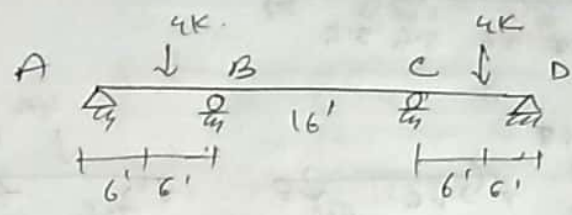 4K. 4K
A B C D
16'
6' 6' 6' 6'